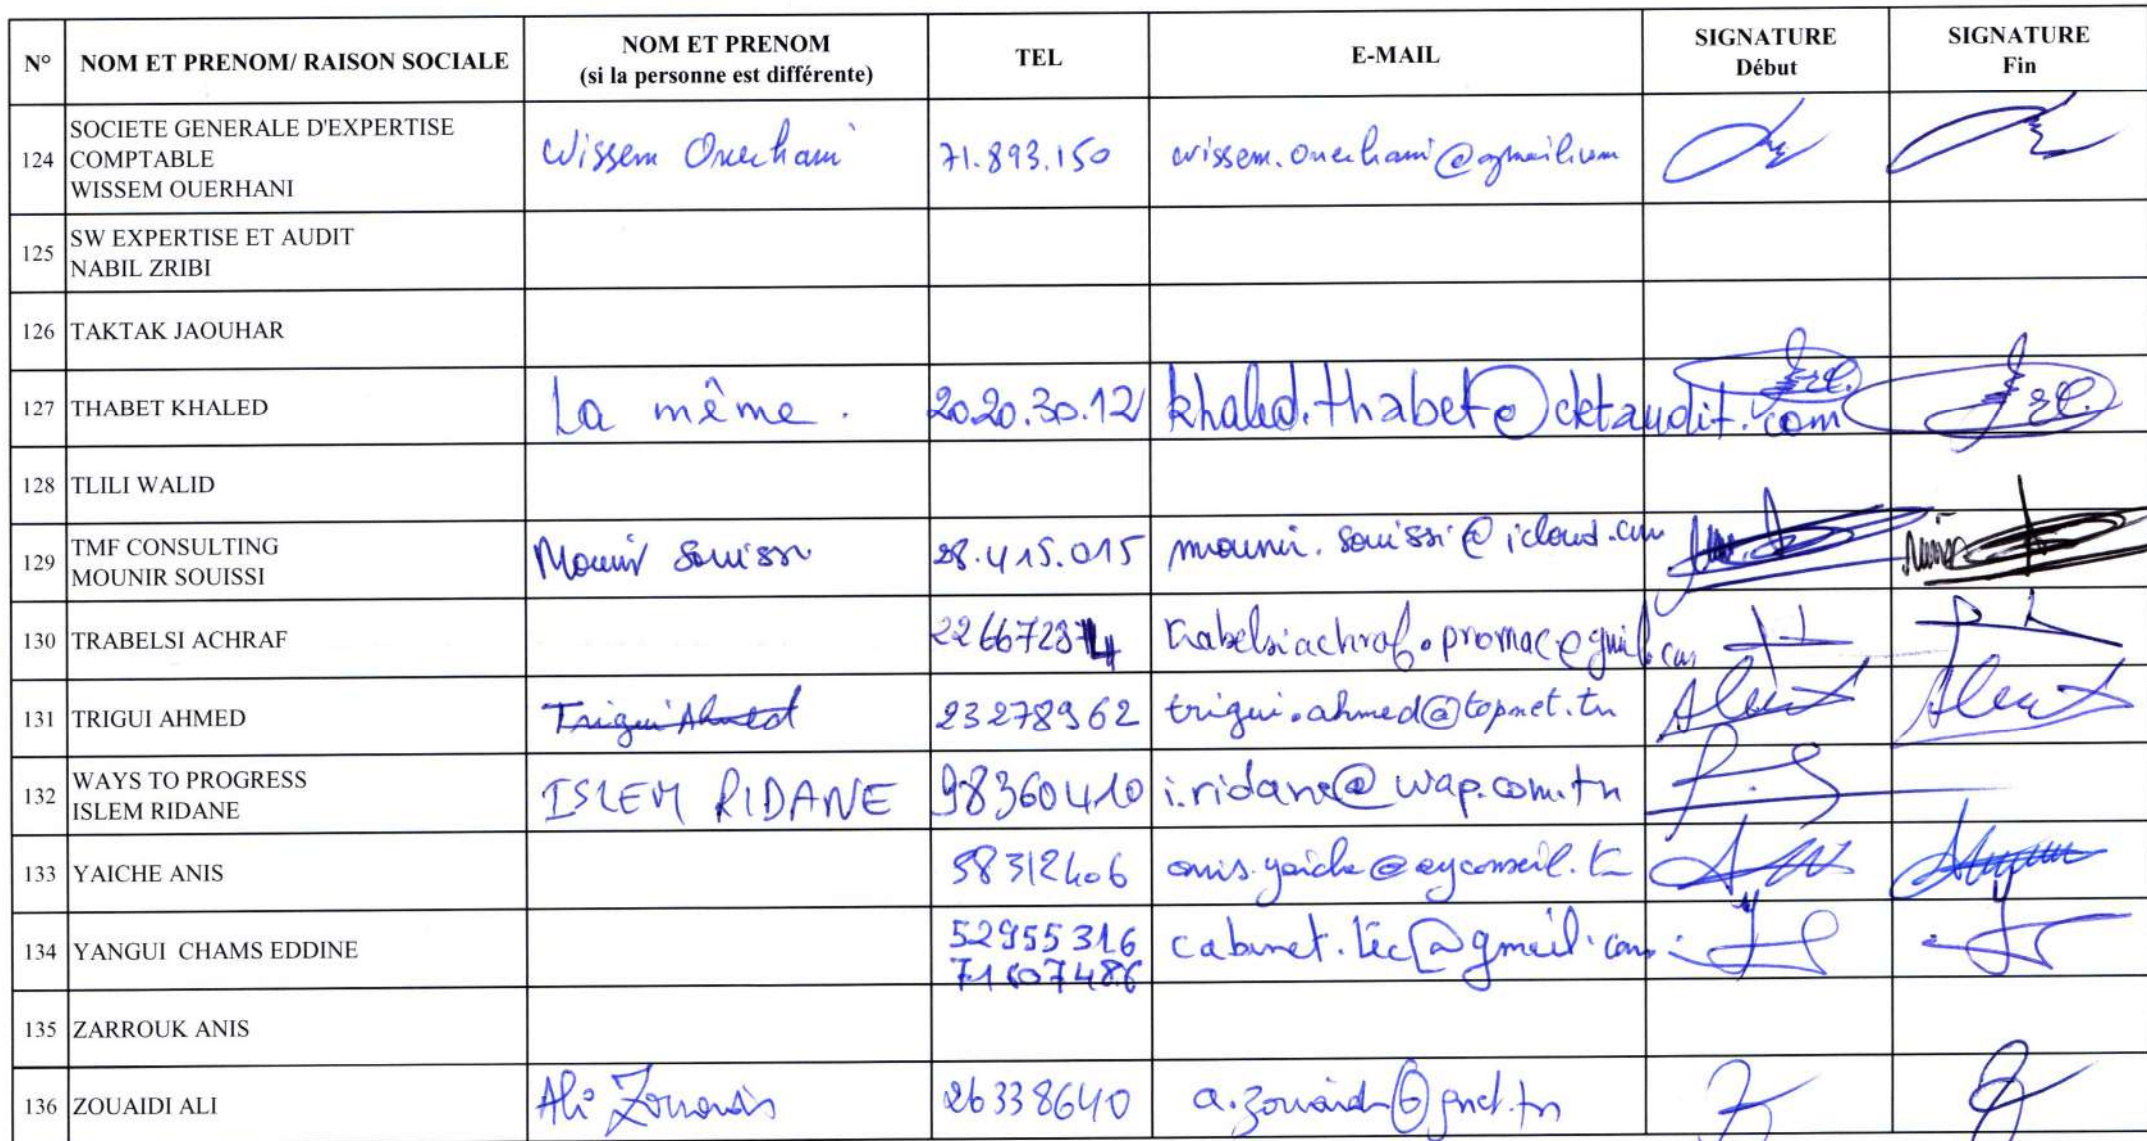 N° NOM ET PRENOM/ RAISON SOCIALE NOM ET PRENOM TEL E-MAIL SIGNATURE SIGNATURE
(si la personne est différente) Début Fin
124 SOCIETE GENERALE D'EXPERTISE
COMPTABLE
WISSEM OUERHANI
Wissem Ouerhani 71.893.150 wissem.ouerhani@gmail.com
125 SW EXPERTISE ET AUDIT
NABIL ZRIBI
126 TAKTAK JAOUHAR
127 THABET KHALED La même. 20.20.30.12 khaled.thabet@cktaudit.com
128 TLILI WALID
129 TMF CONSULTING
MOUNIR SOUISSI
Mounir Souissi 28.415.015 mounir.souissi@icloud.com
130 TRABELSI ACHRAF trabelsiachraf.promac@gmail.com
131 TRIGUI AHMED Trigui Ahmed 23278962 trigui.ahmed@topnet.tn
132 WAYS TO PROGRESS
ISLEM RIDANE
ISLEM RIDANE 98360410 i.ridane@wap.com.tn
133 YAICHE ANIS 58312406 anis.yaiche@ayconseil.tn
134 YANGUI CHAMS EDDINE 52955316 cabinet.tec@gmail.com
71607486
135 ZARROUK ANIS
136 ZOUAIDI ALI Ali Zouaidi 26338640 a.zouaidi@gnet.tn